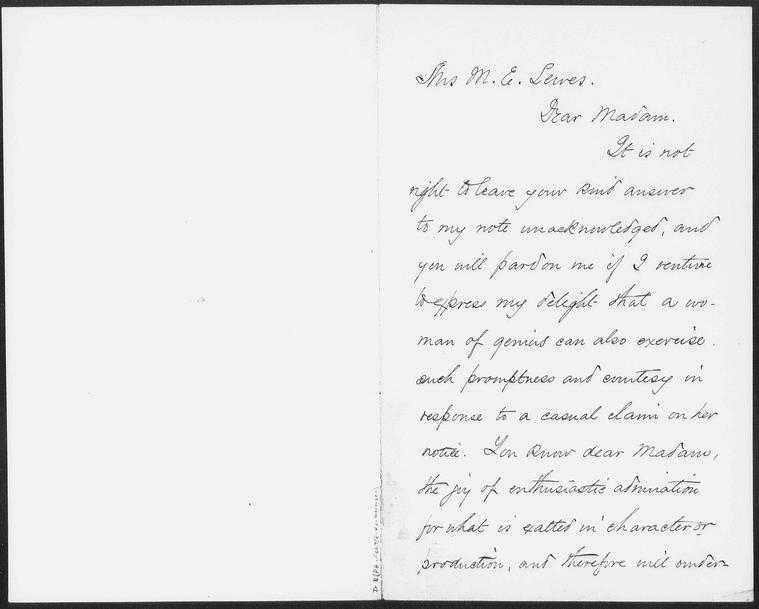 Mrs M. E. Lewes.
Dear Madam.
It is not
right to leave your kind answer
to my note unacknowledged, and
you will pardon me if I venture
to express my delight that a wo-
man of genius can also exercise
such promptness and courtesy in
response to a casual claim on her
notice. You know dear Madam,
the joy of enthusiastic admiration
for what is exalted in character or
production, and therefore will under-